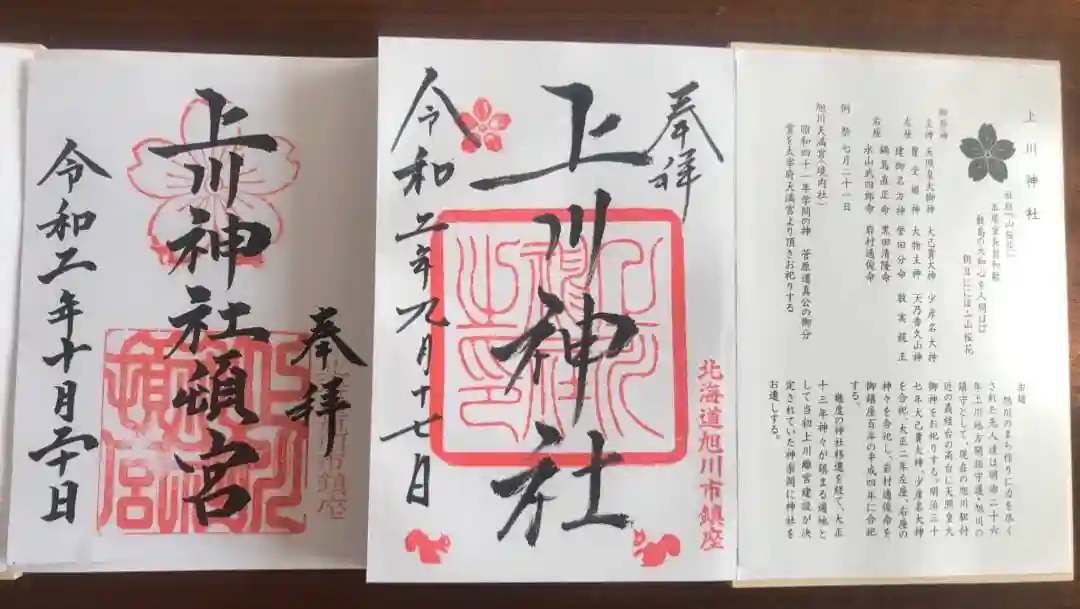 上川神社
社紋『山桜花』
本居宣長翁和歌
敷島の大和心を人問はば
朝日ににほふ山桜花
御祭神
主神 天照皇大御神 大己貴大神 少彦名大神
豊受姫神 大物主神 天乃香久山神
左座 建御名方神 誉田分命 敦実親王
右座 鍋島直正命 黒田清隆命
永山武四郎命 岩村通俊命
例祭 七月二十一日
旭川天満宮(境内社)
昭和四十一年学問の神 菅原道真公の御分
霊を太宰府天満宮より頂きお祀りする
由緒
旭川のまち作りに力を尽く
された先人達は明治二十六
年上川地方開拓守護・旭川の
鎮守として、現在の旭川駅付
近の義経台の高台に天照皇大
御神をお祀りする。明治三十
七年大己貴大神、少彦名大神
を合祀、大正二年左座、右座の
神々を合祀し、岩村通俊命を
御鎮座百年の平成四年に合祀
する。
幾度の神社移遷を経て、大正
十三年神々が鎮まる適地と
して当初上川離宮建設が決
定されていた神楽岡に神社を
お遷しする。
奉拝
上川神社
令和二年九月十七日
北海道旭川市鎮座
奉拝
上川神社頓宮
令和二年十月二十日
市鎮座